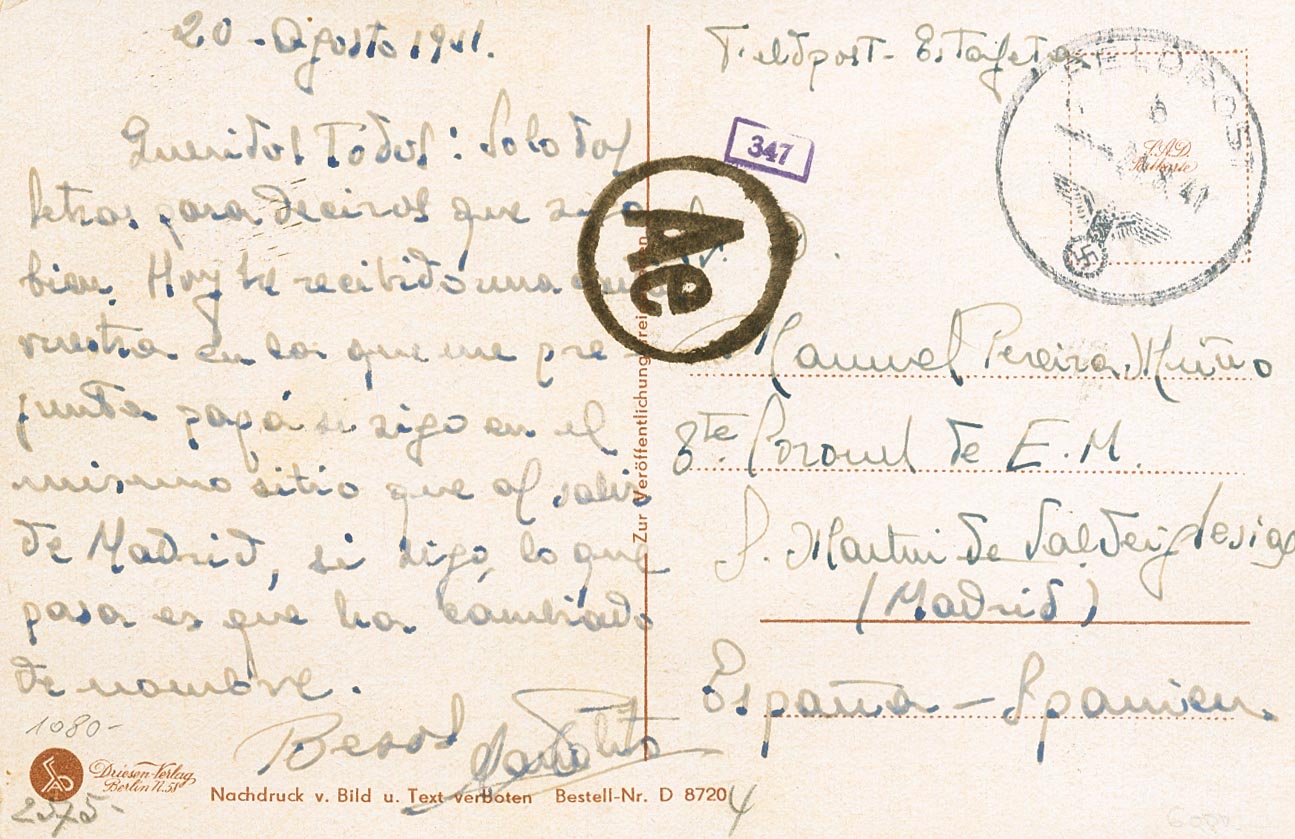 20 - Agosto 1941.
Queridos Todos: Solo dos
letras para deciros que sigo
bien. Hoy he recibido una
vuestra en la que me pre-
gunta papá si sigo en el
mismo sitio que al salir
de Madrid, si sigo, lo que
pasa es que ha cambiado
de nombre.
Besos
1080-
Driesen-Verlag
Berlin N. 58
2375-
Nachdruck v. Bild u. Text verboten Bestell-Nr. D 8720
4
Zur Veröffentlichung frei
Feldpost - Estafeta
FELDPOST
41
347
Ae
S.A.D.
Postkarte
Manuel Pereira Muiño
de E.M.
S. Martin de Valdeiglesias
(Madrid)
España - Spanien